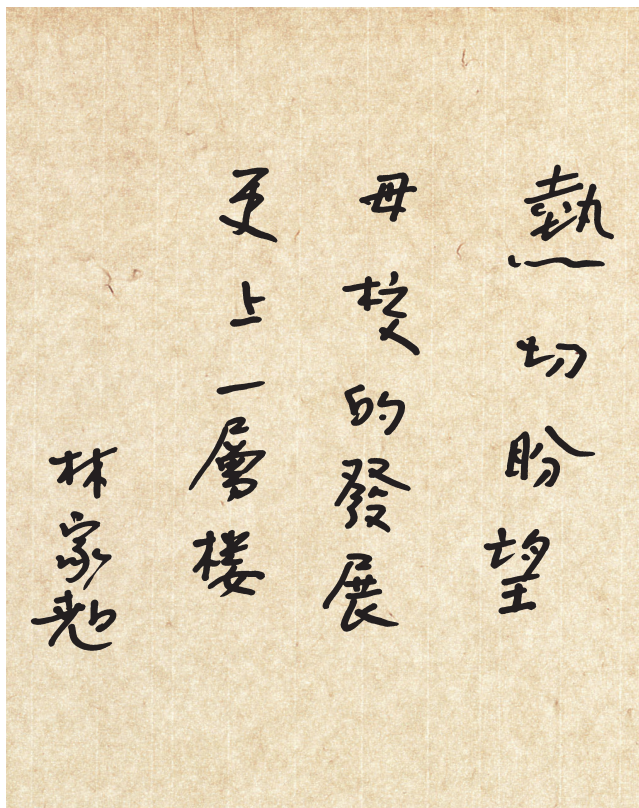 熱切盼望
母校的發展
更上一層楼
林家翘